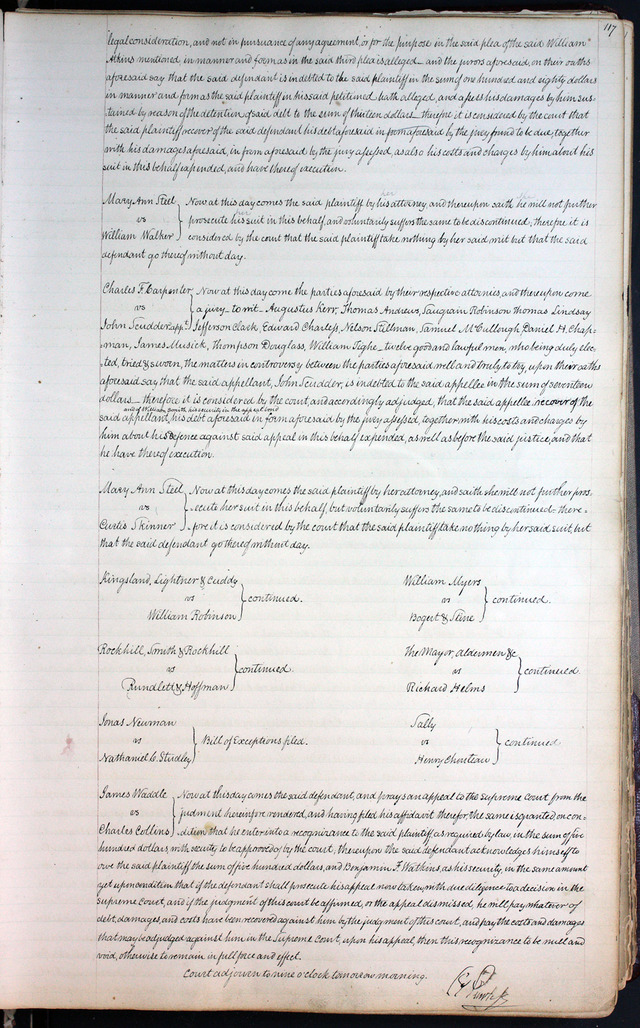 117
legal consideration, and not in pursuance of any agreement, or for the purpose in the said plea of the said William
Atkins mentioned, in manner and form as in the said third plea is alleged and the jurors aforesaid, on their oaths
aforesaid say that the said defendant is indebted to the said plaintiff in the sum of one hundred and eighty dollars
in manner and form as the said plaintiff in his said petition hath alleged, and assess his damages by him sus-
tained by reason of the detention of said debt to the sum of thirteen dollars therefore it is considered by the court that
the said plaintiff recover of the said defendant his debt aforesaid in form aforesaid by the jury found to be due, together
with his damages aforesaid, in form aforesaid by the jury assessed, as also his costs and charges by him about his
suit in this behalf expended, and have thereof execution.
Mary Ann Steel
vs
William Walker
Now at this day comes the said plaintiff by his attorney and thereupon saith he will not further
prosecute his suit in this behalf, and voluntarily suffers the same to be discontinued, therefore it is
considered by the court that the said plaintiff take nothing by her said writ but that the said
defendant go thereof without day.
Charles F. Carpenter
vs
John Scudder appt.
Now at this day come the parties aforesaid by their respective attornies, and thereupon come
a jury to wit Augustus Kerr, Thomas Andrews, Saugrain Robinson Thomas Lindsay
Jefferson Clark, Edward Charless, Nelson Stillman, Samuel McCullough, Daniel H. Chap-
man, James Musick, Thompson Douglass, William Tighe twelve good and lawful men, who being duly elec-
ted, tried & sworn, the matters in controversy between the parties aforesaid well and truly to try, upon their oaths
aforesaid say that the said appellant, John Scudder, is indebted to the said appellee in the sum of seventeen
dollars therefore it is considered by the court, and accordingly adjudged, that the said appellee recover of the
and of William Smith, his security in the appeal bond
said appellant, his debt aforesaid in form aforesaid by the jury assessed, together with his costs and charges by
him about his defence against said appeal in this behalf expended, as well as before the said justice, and that
he have thereof execution.
Mary Ann Steel
vs
Curtis Skinner
Now at this day comes the said plaintiff by her attorney, and saith she will not further pros-
ecute her suit in this behalf, but voluntarily suffers the same to be discontinued there-
fore it is considered by the court that the said plaintiff take nothing by her said suit, but
that the said defendant go thereof without day.
Kingsland, Lightner & Cuddy
vs
William Robinson
continued.
William Myers
vs
Bogert &
continued.
Rockhill, Smith & Rockhill
vs
Rundlett & Hoffman
continued.
The Mayor, aldermen &c
vs
Richard Helms
continued.
Jonas Newman
vs
Nathaniel C. Studley
Bill of Exceptions filed.
Sally
vs
Henry Chouteau
continued
James Waddle
vs
Charles Collins
Now at this day comes the said defendant, and prays an appeal to the Supreme Court from the
judgment herein fore rendered, and having filed his affidavit therefor, the same is granted, on con-
dition that he enter into a recognizance to the said plaintiff as required by law, in the sum of five
hundred dollars, with security to be approved of by the court, thereupon the said defendant acknowledges himself to
owe the said plaintiff the sum of five hundred dollars, and Benjamin F. Watkins, as his security, in the same amount
yet upon condition that if the defendant shall prosecute his appeal now taken, with due diligence to a decision in the
Supreme Court, and if the judgment of this court be affirmed, or the appeal dismissed, he will pay whatever of
debt, damages, and costs have been recovered against him by the judgment of this court, and pay the costs and damages
that may be adjudged against him in the Supreme Court, upon his appeal, then this recognizance to be null and
void, otherwise to remain in full force and effect.
Court adjourn to nine o'clock tomorrow morning.